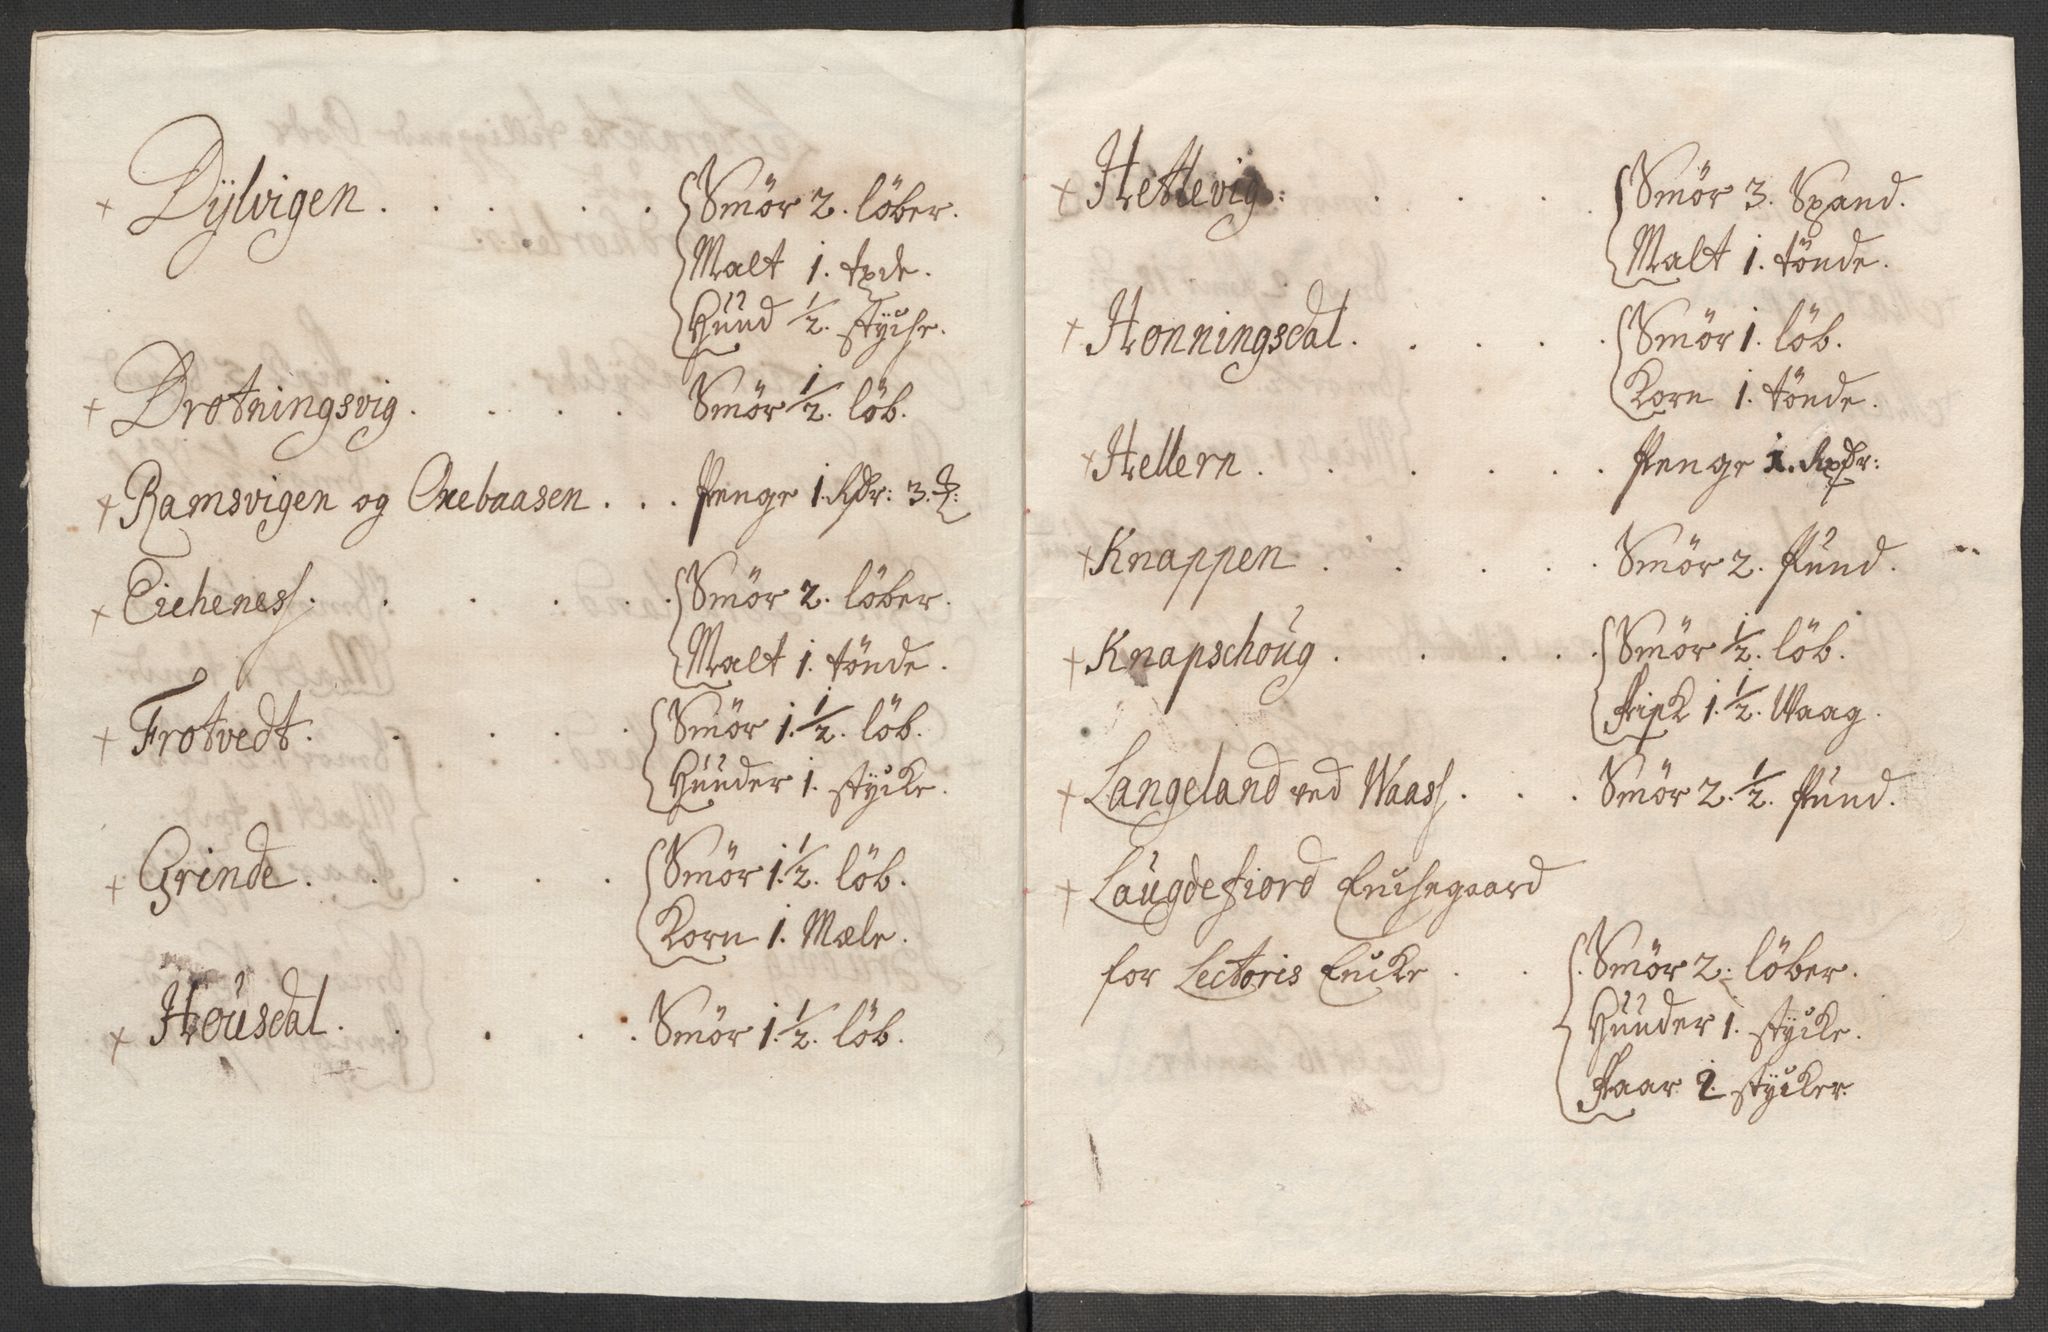 + Dÿlvigen . . . . . . Smör 2. löber.
Malt 1. tde.
Hüüd 1/2. stÿche.
+ Drotningsvig . . . . Smör 1/2. löb.
+ Ramsvigen og Oxebaasen . . . Penge 1. Rdr: 3. ₰:
+ Eichenes . . . . . Smör 2. löber.
Malt 1. tönde.
+ Frotvedt . . . . . Smör 1. 1/2. löb.
Hüüder 1. stÿcke.
+ Grinde . . . . . Smör 1. 1/2. löb.
Korn 1. Mæle.
+ Houscal . . . . . Smör 1. 1/2. löb.
+ Hettevig: . . . . Smör 3. Spand.
Malt 1. tönde.
+ Honningsdal . . . . . Smör 1. löb.
Korn 1. tönde.
+ Hellern . . . . . Penge 1. Rxdr:
+ Knappen . . . . . Smör 2. Pund.
+ Knapschoug . . . . . Smör 1/2. löb.
1. 1/2. Waag.
+ Langeland ved Waas . . . Smör 2. 1/2. Pund.
+ Laugdefiord Enchegaard
for Lectoris Encke . . Smör 2. löber.
Hüüder 1. stÿcke.
Faar 2. stÿcker.